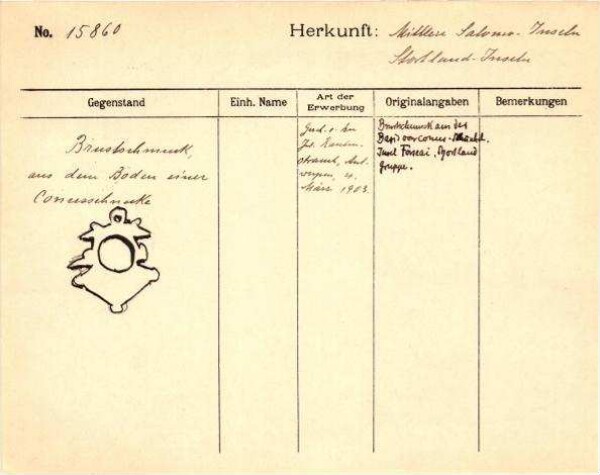 No. 15860
Herkunft: Mittlere Salomo-Inseln
Shortland-Inseln
Gegenstand
Einh. Name
Art der Erwerbung
Originalangaben
Bemerkungen
Brustschmuck,
aus dem Boden einer
Conusschnecke
März 1903.
Brustschmuck aus der
Basis von conus-
Insel
Gruppe.